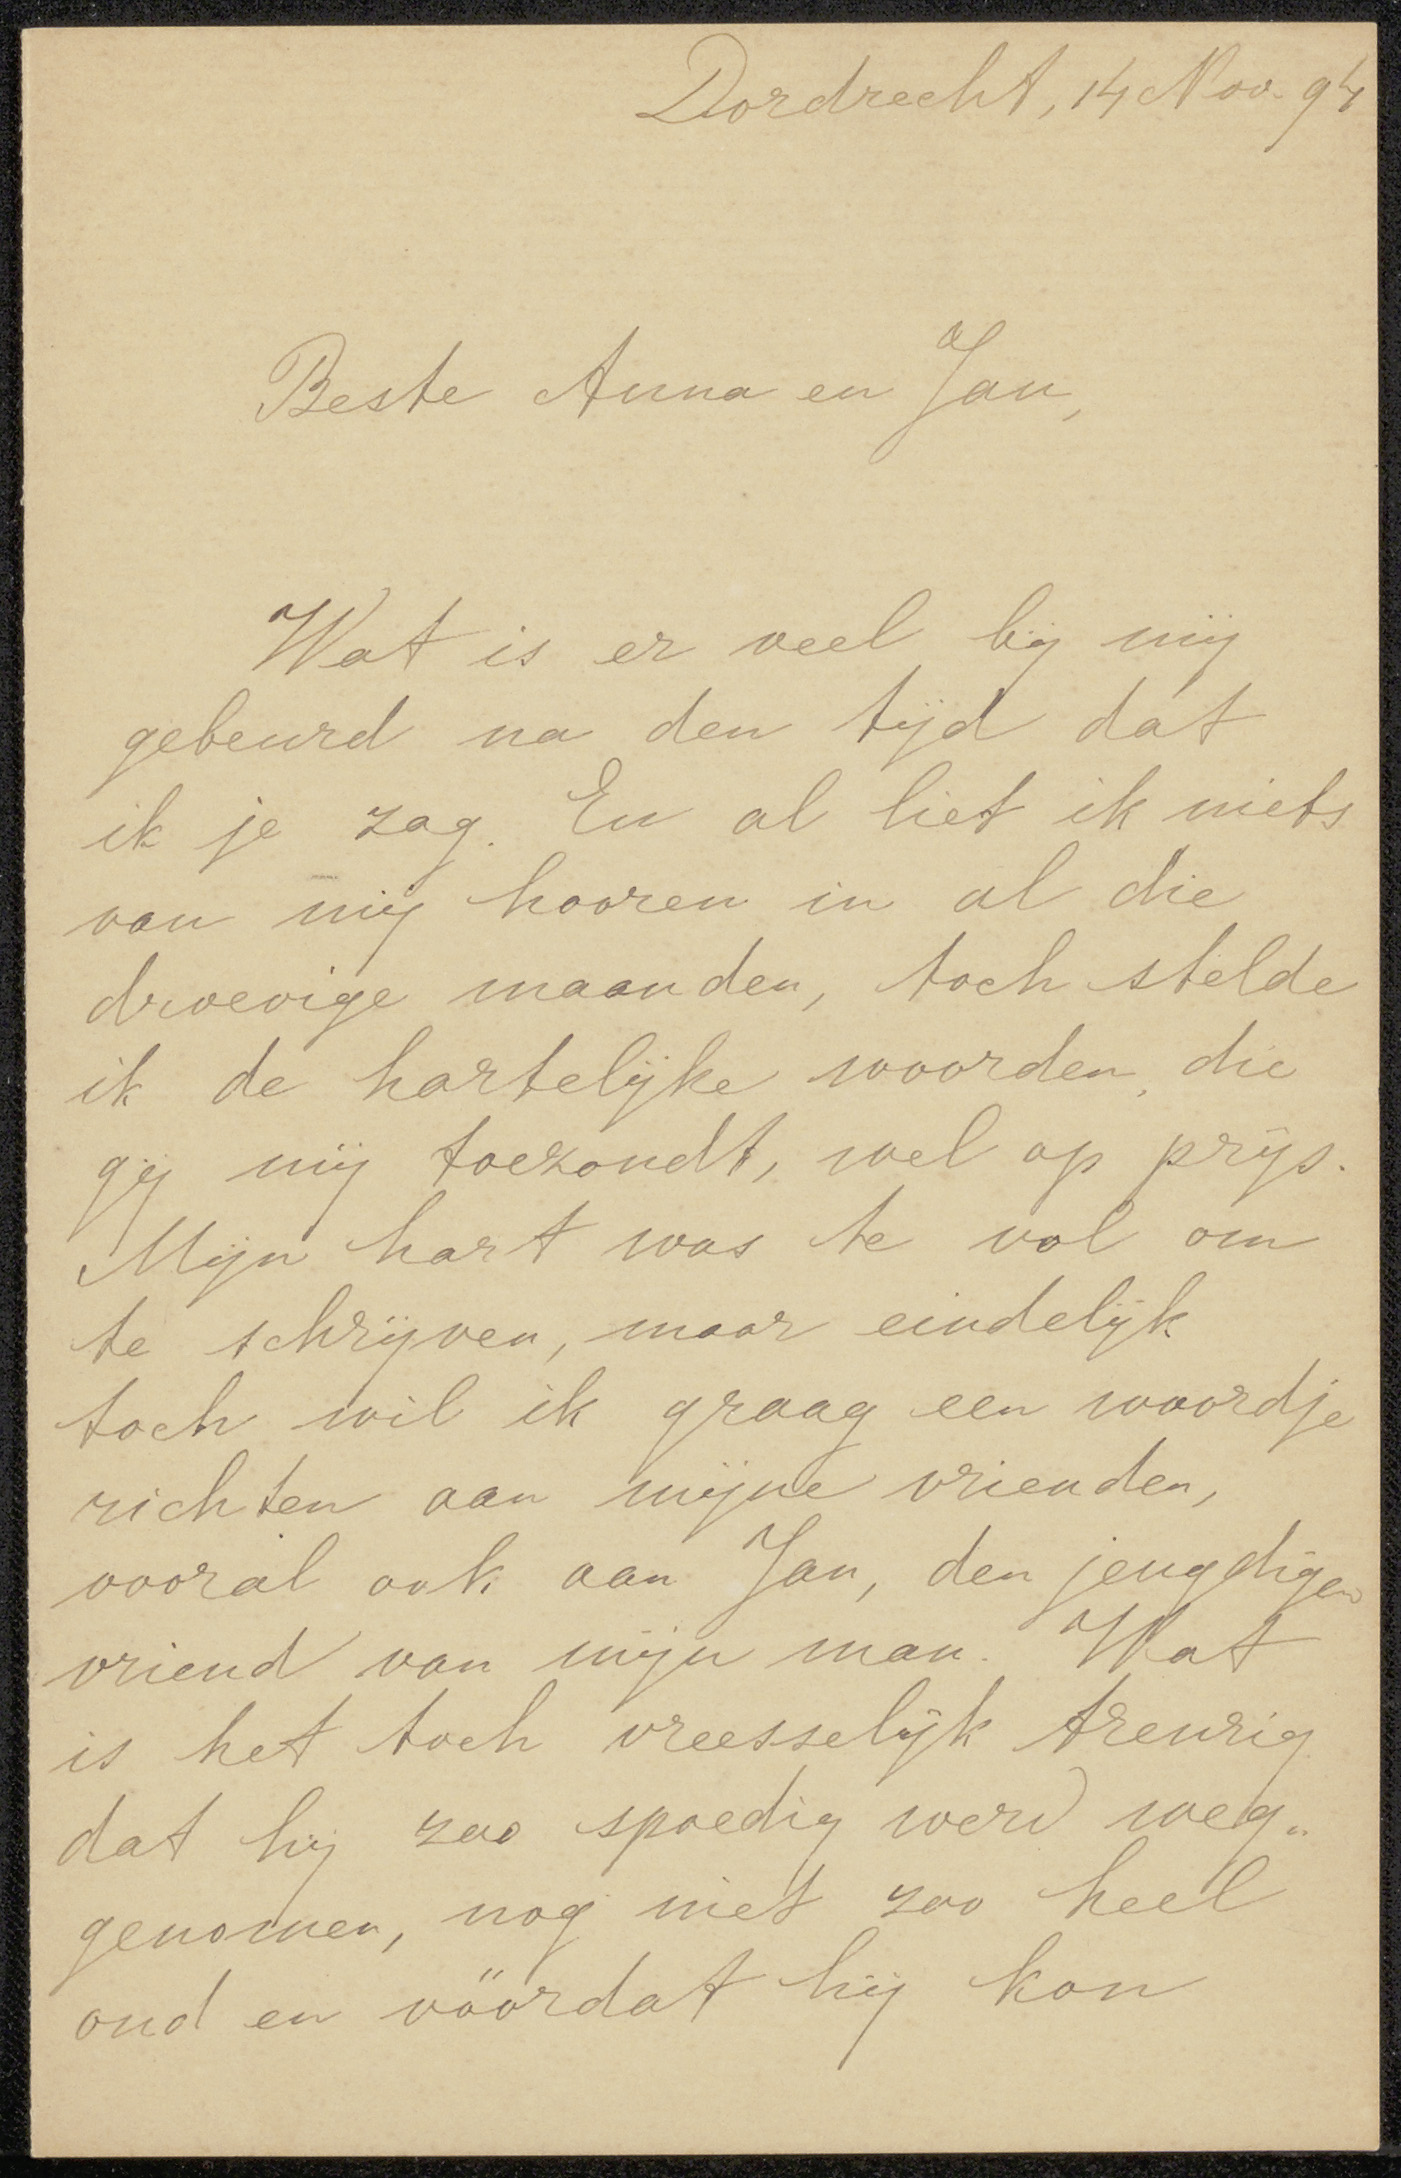 Dordrecht, 14 Nov. 94
Beste Anna en Jan,
Wat is er veel bij mij
gebeurd na den tijd dat
ik je zag. En al liet ik niets
van mij hooren in al die
droevige maanden, toch stelde
ik de hartelijke woorden, die
gij mij toezondt, wel op prijs.
Mijn hart was te vol om
te schrijven, maar eindelijk
toch wil ik graag een woordje
richten aan mijne vrienden,
vooral ook aan Jan, den jeugdigen
vriend van mijn man. Wat
is het toch vreesselijk treurig
dat hij zoo spoedig werd weg„
genomen, nog niet zoo heel
oud en vöórdat hij kon